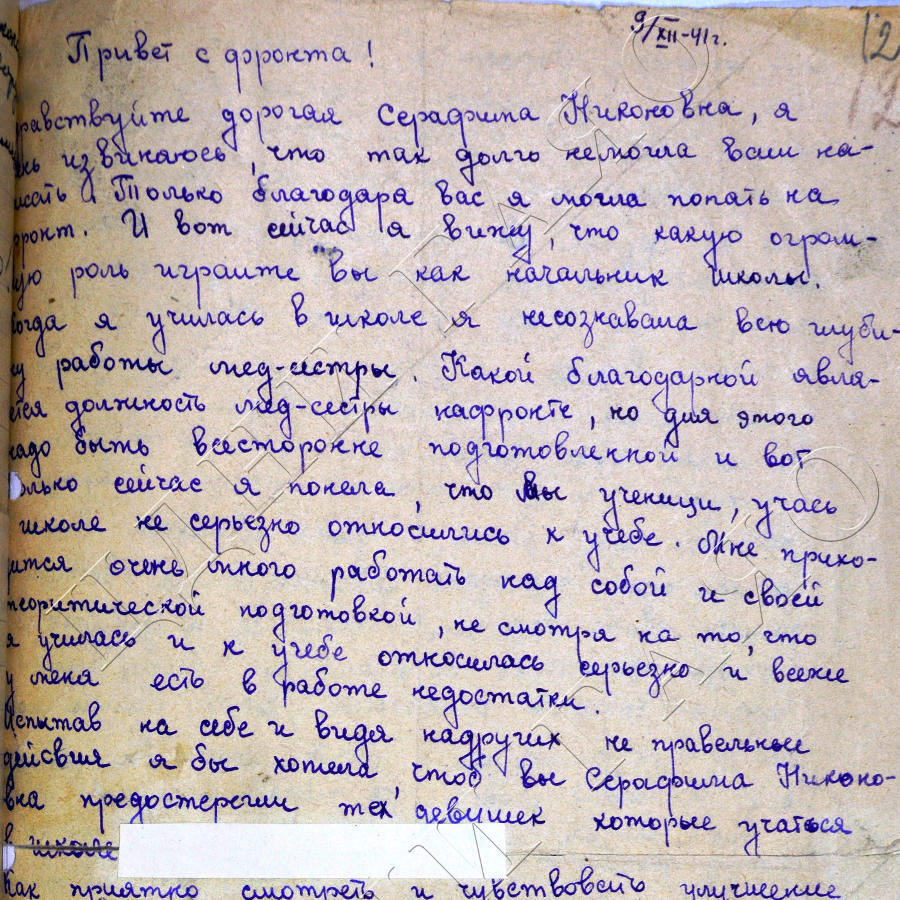 9/XII-41г.
12
Привет с фронта!
равствуйте дорогая Серафима Никоновна, я
нь извиняюсь, что так долго немогла вам на-
исать. Только благодаря вас я могла попать на
ронт. И вот сейчас я вижу, что какую огром-
ую роль играите вы как начальник школы.
огда я училась в школе я несознавала всю глуби-
ну работы мед-сестры. Какой благодарной явля-
ется должность мед-сестры нафронте, но для этого
надо быть всесторонне подготовленной и вот
олько сейчас я понела, что мы ученици, учась
школе не серьезно относились к учебе. Мне прихо-
дится очень много работать над собой и своей
теоритической подготовкой, не смотря на то, что
я училась и к учебе относилась серьезно и всеже
у меня есть в работе недостатки.
Испытав на себе и видя надругих не правельные
действия я бы хотела, чтоб вы Серафима Никоно-
вна предостерегли тех девушек которые учаться
в школе
Как приятно смотреть и чувствовать улучшение